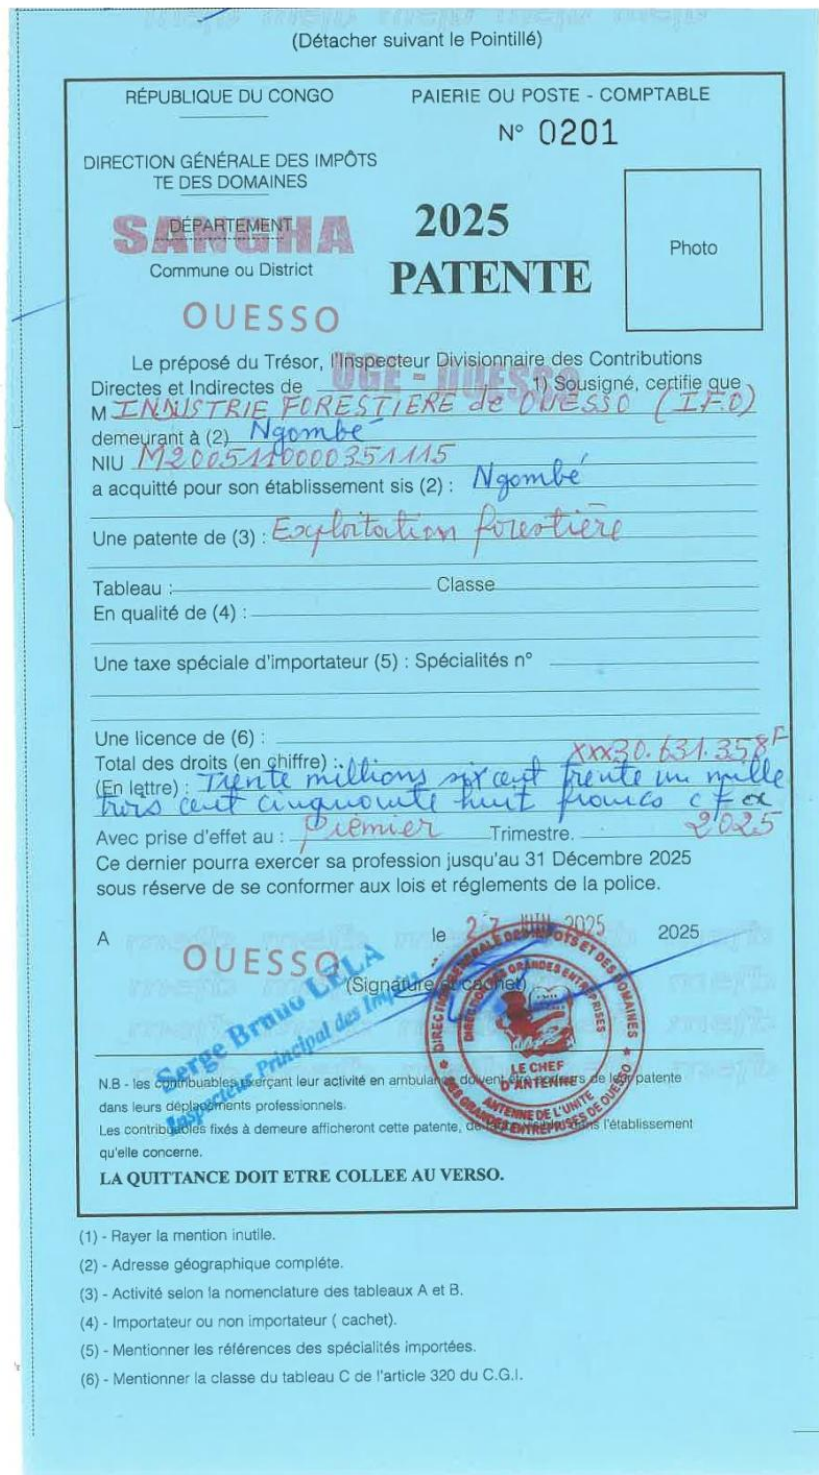 (Détacher suivant le Pointillé)
RÉPUBLIQUE DU CONGO
PAIERIE OU POSTE - COMPTABLE
N° 0201
DIRECTION GÉNÉRALE DES IMPÔTS
TE DES DOMAINES
DÉPARTEMENT
SANGHA
Commune ou District
OUESSO
2025
PATENTE
Photo
Le préposé du Trésor, l'Inspecteur Divisionnaire des Contributions
Directes et Indirectes de UGE - OUESSO 1) Sousigné, certifie que
M INNISTRIE FORESTIERE de OUESSO (I.F.O)
demeurant à (2) Ngombé
NIU M2005110000351115
a acquitté pour son établissement sis (2) : Ngombé
Une patente de (3) : Exploitation forestière
Tableau : Classe
En qualité de (4) :
Une taxe spéciale d'importateur (5) : Spécialités n°
Une licence de (6) :
Total des droits (en chiffre) : xxx30.631.358F
(En lettre) : Trente millions six cent trente un mille
trois cent cinquante huit francs cFa
Avec prise d'effet au : Premier Trimestre. 2025
Ce dernier pourra exercer sa profession jusqu'au 31 Décembre 2025
sous réserve de se conformer aux lois et réglements de la police.
A OUESSO le 27 JUIN 2025 2025
(Signature et cachet)
Serge Bruno LELA
Inspecteur Principal des Impôts
DIRECTION GÉNÉRALE DES IMPOTS ET DES DOMAINES
DIRECTION DES GRANDES ENTREPRISES
LE CHEF
D'ANTENNE
ANTENNE DE L'UNITE
DES GRANDES ENTREPRISES DE OUESSO
N.B - les contribuables exerçant leur activité en ambulance doivent être porteurs de leur patente
dans leurs déplacements professionnels.
Les contribuables fixés à demeure afficheront cette patente, de façon visible, dans l'établissement
qu'elle concerne.
LA QUITTANCE DOIT ETRE COLLEE AU VERSO.
(1) - Rayer la mention inutile.
(2) - Adresse géographique compléte.
(3) - Activité selon la nomenclature des tableaux A et B.
(4) - Importateur ou non importateur ( cachet).
(5) - Mentionner les références des spécialités importées.
(6) - Mentionner la classe du tableau C de l'article 320 du C.G.I.